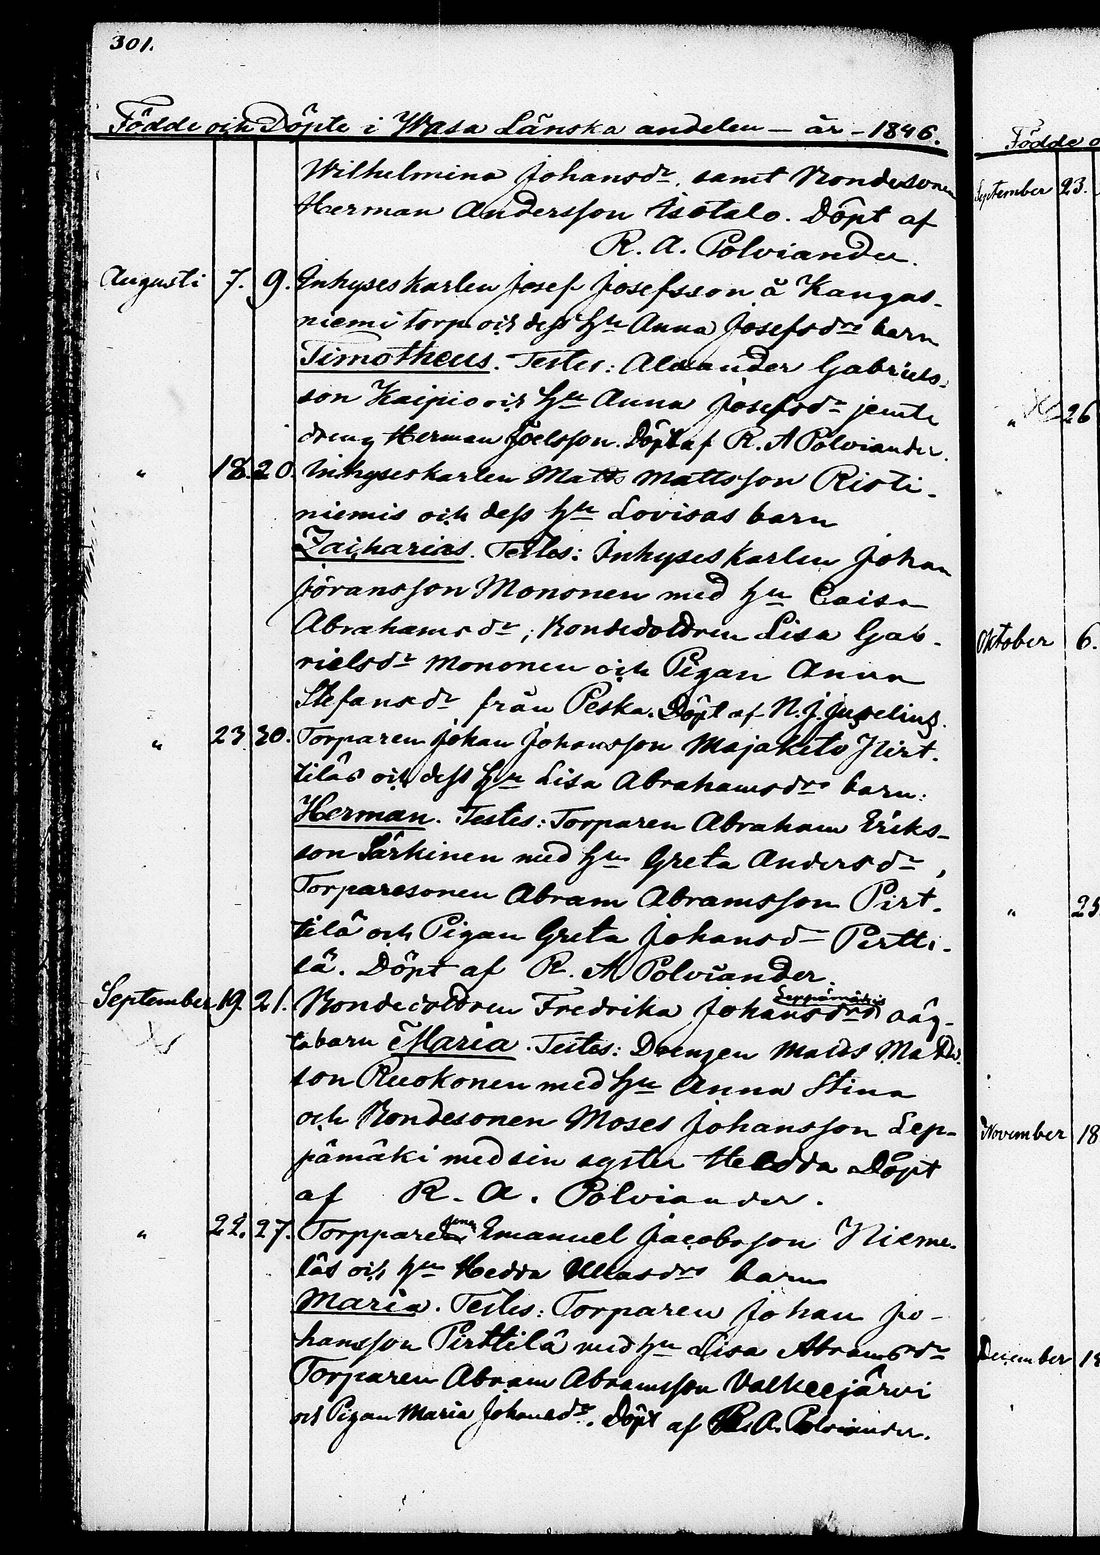 301.
Födde och Döpte i Wasa Länska andelen — år - 1846.
Wilhelmina Johansdr. samt Bondesonen
Herman Andersson Isotalo. Döpt af
R. A. Polviander.
Augusti 7. 9. Inhyseskarlen Josef Josefsson å Kangas-
niemi torp och dess hu Anna Josefsdrs barn
Timotheus. Testes: Alexander Gabriels-
son Kaipio och hu Anna Josefsdr jemte
dreng Herman Joelsson. Döpt af R. A Polviander.
" 18. 20. Inhyseskarlen Matts Mattsson Risti-
niemis och dess hu Lovisas barn
Zacharias. Testes: Inhyseskarlen Johan
Jöransson Mononen med hu Caisa
Abrahamsdr, Bondedottren Lisa Gab-
rielsdr Mononen och Pigan Anna
Stefansdr från Peska. Döpt af N. J. Juselius.
" 23 30. Torparen Johan Johansson Majaketo Pirt-
tiläs och dess hu Lisa Abrahamsdrs barn:
Herman. Testes: Torparen Abraham Eriks-
son Särkinen med hu Greta Andersdr,
Torparesonen Abram Abramsson Pirt-
tilä och Pigan Greta Johansdr Pertti-
lä. Döpt af R. A Polviander.
September 19. 21. Bondedottren Fredrika Johansdrs Leppämäkis oäg-
ta barn Maria. Testes: Drengen Matts Matts
son Ruokonen med hu Anna Stina
och Bondesonen Moses Johansson Lep-
pämäki med sin syster Hedda Döpt
af R. A. Polviander.
" 22. 27. Torpparesonen Emanuel Jacobsson Nieme-
läs och hu Hedda Ullasdrs barn
Maria. Testes: Torparen Johan Jo-
hansson Pirttilä med hu Lisa Abramsdr
Torparen Abram Abramsson Valkeejärvi
och Pigan Maria Johansdr. Döpt af R. A. Polviander.
Födde o
September 23.
" 26
"
Oktober 6.
" 25
November 18
December 18